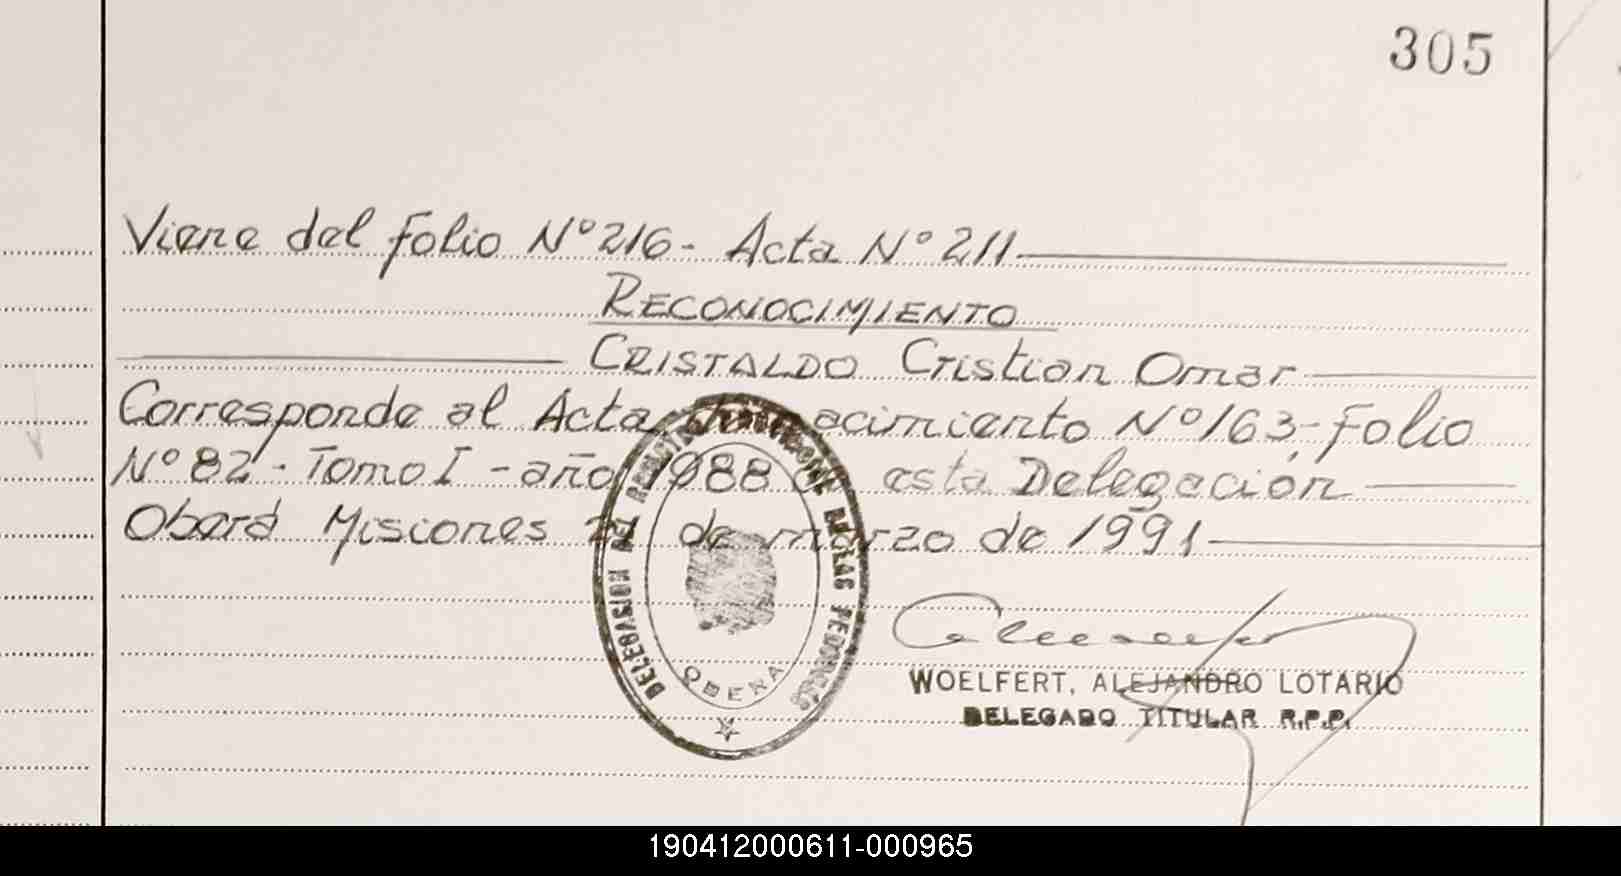 305
Viene del folio Nº 216 - Acta Nº 211
RECONOCIMIENTO
CRISTALDO Cristian Omar
Corresponde al Acta de nacimiento Nº 163 - Folio
Nº 82 - Tomo I - año 1988 esta Delegación
Oberá Misiones 21 de marzo de 1991
DELEGACION DEL REGISTRO PROVINCIAL DE LAS PERSONAS
OBERA
WOELFERT, ALEJANDRO LOTARIO
DELEGADO TITULAR R.P.P.
190412000611-000965